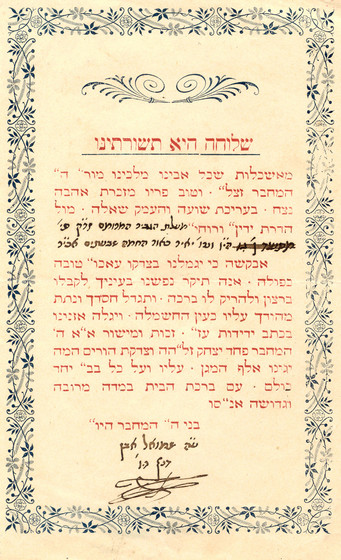 שלוחה היא תשורתינו
מאשכלות שכל אבינו מלכינו מור״ ה״
המחבר זצל״ ׃ וטוב פריו מזכרת אהבה
נצח ׃ בעריכת שועה והעמק שאלה ׃ מול
הדרת ידין״ ורוחי״
אבקשה כי יגמלנו בצדקו עאכו״ טובה
כפולה ׃ אנה תיקר נפשנו בעיניך לקבלו
ברצון ולהריק לו ברכה ׃ ותגדל חסדך ונתת
מהודך עליו כעין החשמלה ׃ ויגלה אזנינו
בכתב ידידות עז״ ׃ זכות ומישור א״א ה״
המחבר פחד יצחק זל״הה וצדקת הורים המה
יגינו אלף המגן ׃ עליו ועל כל בב״ יחד
כולם ׃ עם ברכת הבית במדה מרובה
וגדושה אנ״סו
בני ה״ המחבר היו״